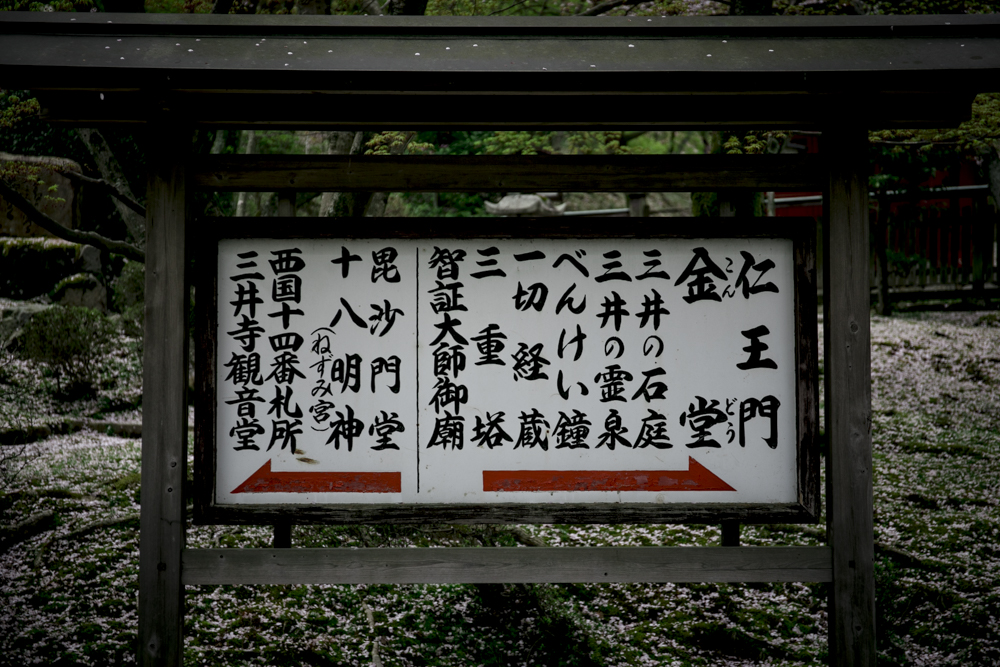 仁王門
金堂
こんどう
三井の石庭
三井の霊泉
べんけい鐘
一切経蔵
三重塔
智証大師御廟
毘沙門堂
十八明神
(ねずみ宮)
西国十四番札所
三井寺観音堂